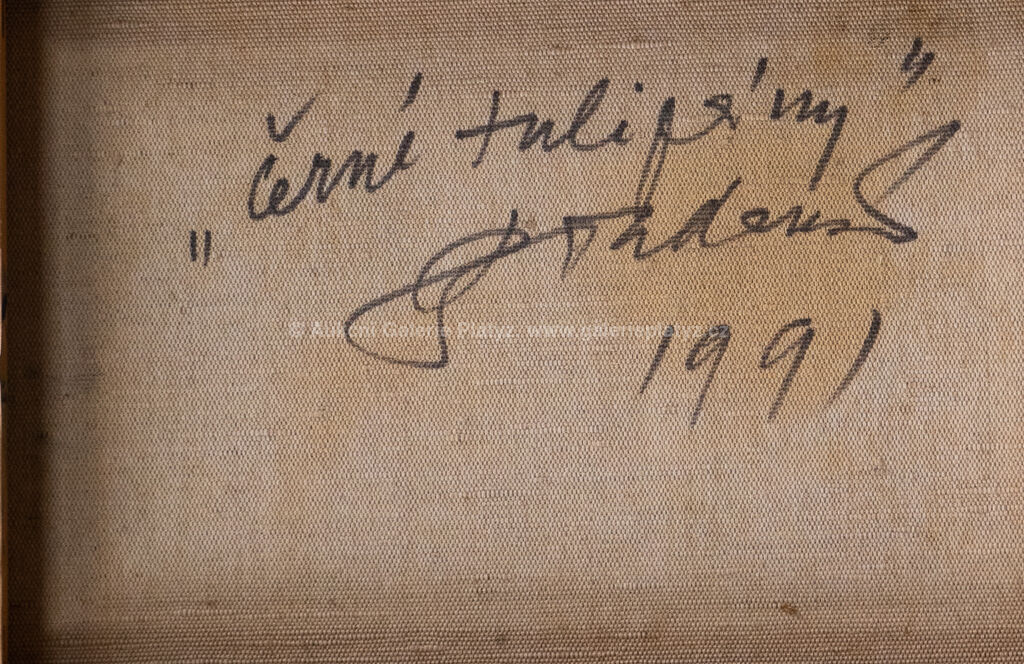 „černé tulipány"
1991
© Aukční Galerie Platýz, www.galerieplatyz.cz